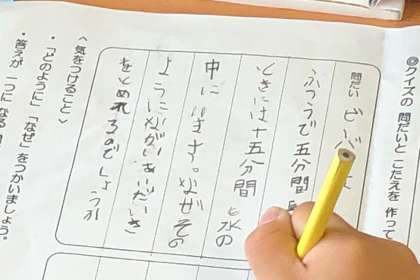 ◎クイズの 問だいと こたえを 作って
問だい ビバ
ふつうで五分間
ときには十五分間も水の
中にいます。なぜその
ようにながいあいだいき
をとめれるのでしょうか
〈気をつけること〉
・「どのように」「なぜ」をつかいましょう。
・答えが 一つに なる